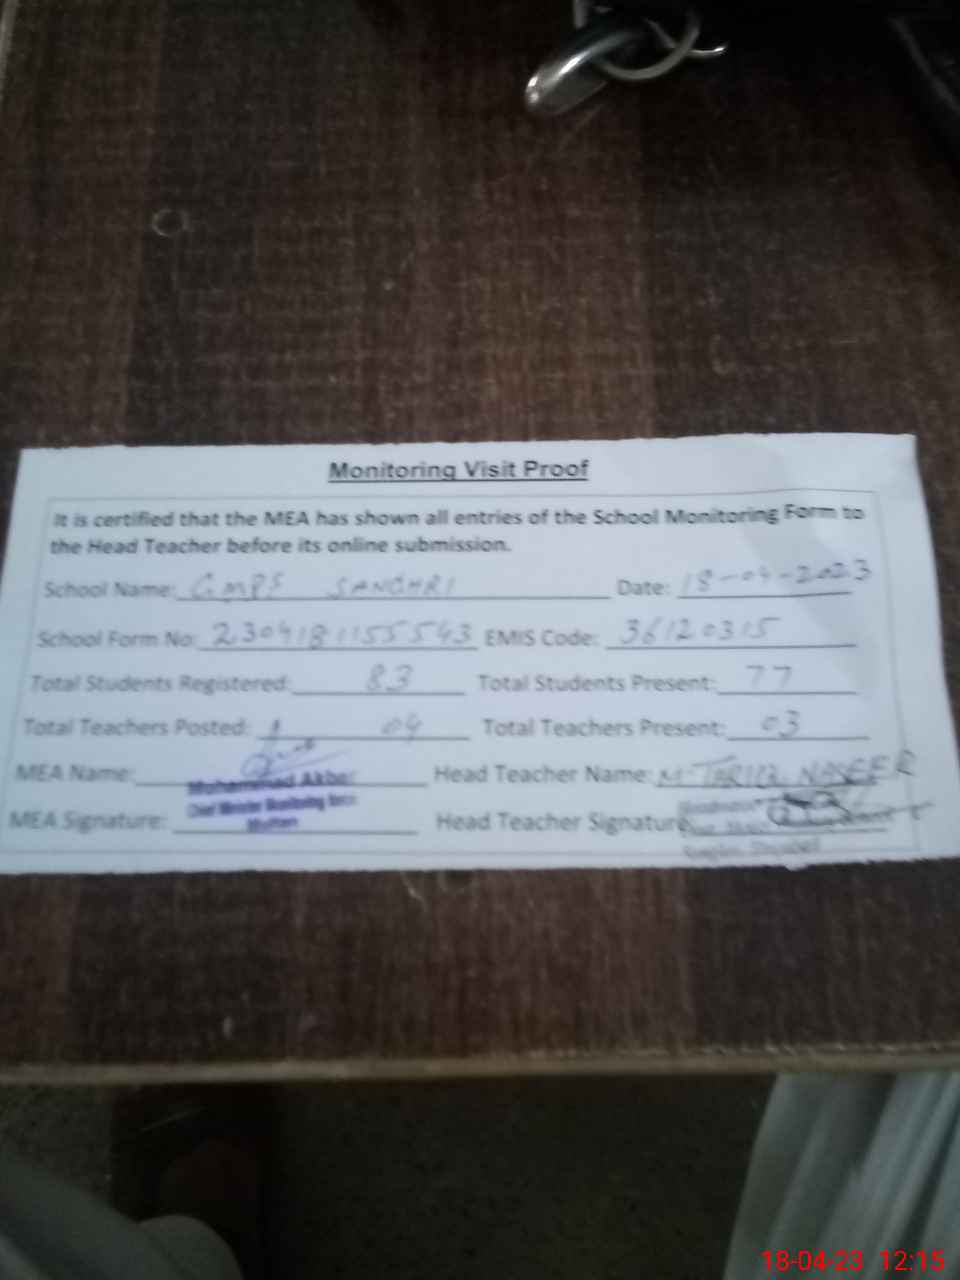 Monitoring Visit Proof
It is certified that the MEA has shown all entries of the School Monitoring Form to
the Head Teacher before its online submission.
School Name: GMPS SANGHRI Date: 18-04-2023
School Form No: 2304181155543 EMIS Code: 36120315
Total Students Registered: 83 Total Students Present: 77
Total Teachers Posted: 04 Total Teachers Present: 03
MEA Name: Head Teacher Name: M. TARIQ NASEER
Muhammad Akbar
Chief Minister Monitoring Force
Multan
MEA Signature: Head Teacher Signature
18-04-23 12:15